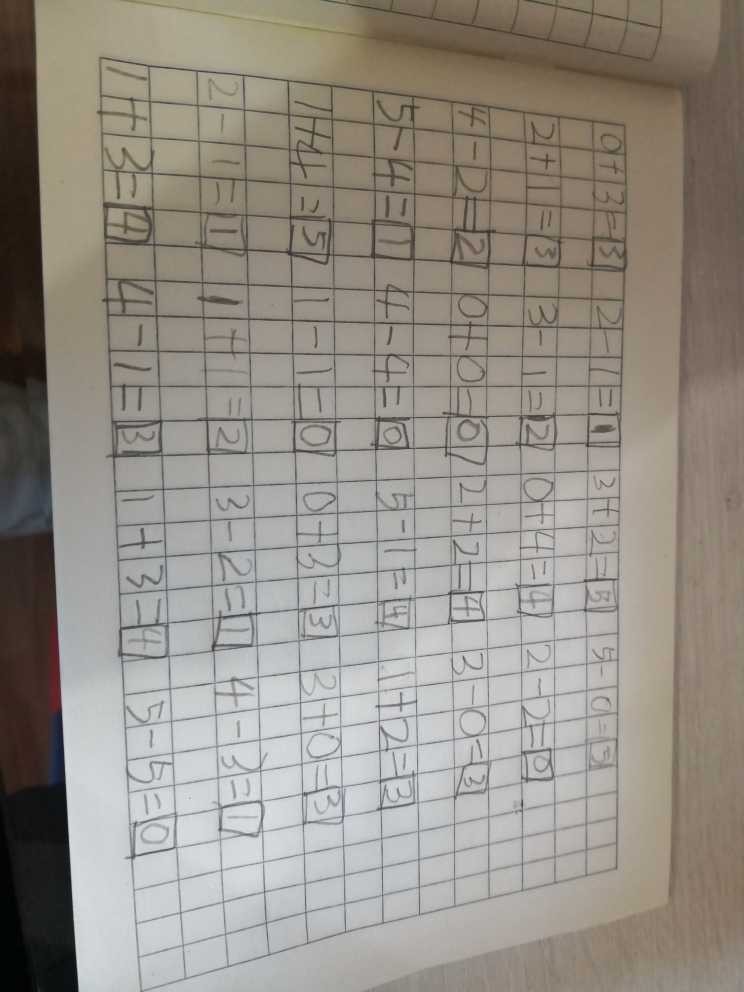 0+3=3 2-1=1 3+2=5 5-0=5
2+1=3 3-1=2 0+4=4 2-2=0
4-2=2 0+0=0 2+2=4 3-0=3
5-4=1 4-4=0 5-1=4 1+2=3
1+4=5 1-1=0 0+3=3 3+0=3
2-1=1 1+1=2 3-2=1 4-3=1
1+3=4 4-1=3 1+3=4 5-5=0